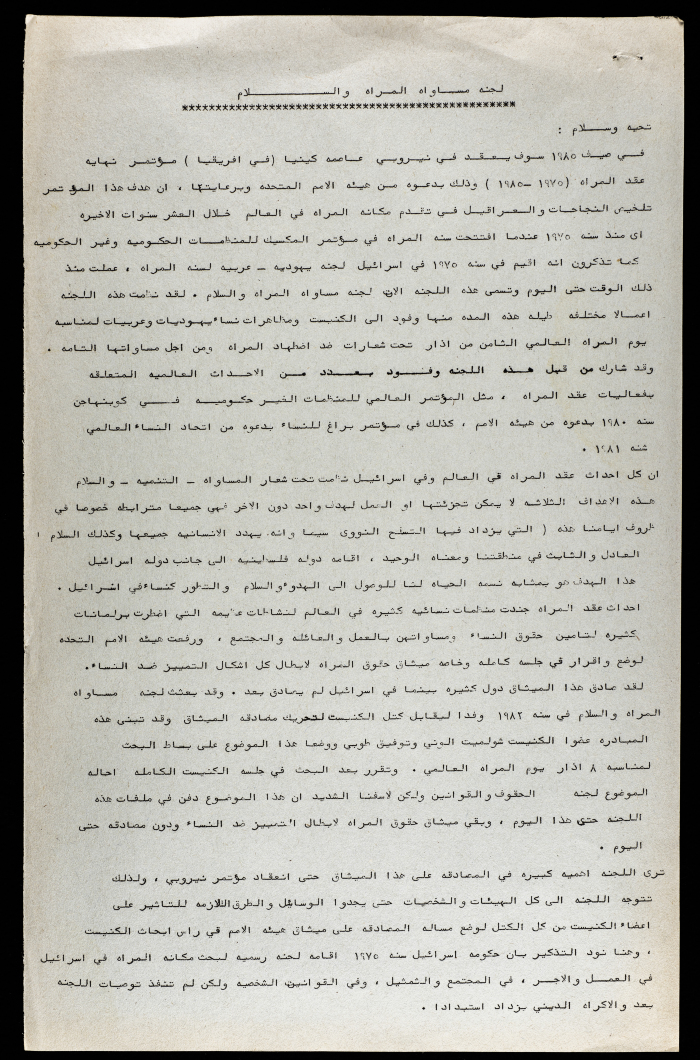 لجنه مساواه المراه والسلام
************************************************
تحيه وسلام :
في صيف ١٩٨٥ سوف يعقد في نيروبي عاصمه كينيا (في افريقيا ) مؤتمر نهايه
عقد المراه (١٩٧٥ – ١٩٨٥ ) وذلك بدعوه من هيئه الامم المتحده وبرعايتها ، ان هدف هذا المؤتمر
تلخيص النجاحات والعراقيل في تقدم مكانه المراه في العالم خلال العشر سنوات الاخيره
اى منذ سنه ١٩٧٥ عندما افتتحت سنه المراه في مؤتمر المكسيك للمنظمات الحكوميه وغير الحكوميه
كما تذكرون انه اقيم في سنه ١٩٧٥ في اسرائيل لجنه يهوديه – عربيه لسنه المراه ، عملت منذ
ذلك الوقت حتى اليوم وتسمى هذه اللجنه الان لجنه مساواه المراه والسلام . لقد نظمت هذه اللجنه
اعمالا مختلفه طيله هذه المده منها وفود الى الكنيست ومظاهرات نساء يهوديات وعربيات لمناسبه
يوم المراه العالمي الثامن من اذار تحت شعارات ضد اضطهاد المراه ومن اجل مساواتها التامه .
وقد شارك من قبل هذه اللجنه وفود بعدد من الاحداث العالميه المتعلقه
بفعاليات عقد المراه ، مثل المؤتمر العالمي للمنظمات الغير حكوميه في كوبنهاجن
سنه ١٩٨٠ بدعوه من هيئه الامم ، كذلك في مؤتمر براغ للنساء بدعوه من اتحاد النساء العالمي
شنه ١٩٨١ .
ان كل احداث عقد المراه في العالم وفي اسرائيل نظمت تحت شعار المساواه – التنميه – والسلام
هذه الاهداف الثلاثه لا يمكن تجزئتها او العمل لهدف واحد دون الاخر فهي جميعا مترابطه خصوصا في
ظروف ايامنا هذه ( التي يزداد فيها التسلح النووى سيما وانه يهدد الانسانيه جميعها وكذلك السلام
العادل والثابت في منطقتنا ومعناه الوحيد ، اقامه دوله فلسطينيه الى جانب دوله اسرائيل
هذا الهدف هو بمثابه نسمه الحياه لنا للوصول الى الهدوء والسلام والتطور كنساء في اشرائيل .
احداث عقد المراه جندت منظمات نسائيه كثيره في العالم لنشاطات عظيمه التي اضطرت برلمانات
كثيره لتامين حقوق النساء ومساواتهن بالعمل والعائله والمجتمع ، ورفعت هيئه الامم التحده
لوضع واقرار في جلسه كامله وخاصه ميثاق حقوق المراه لابطال كل اشكال التمييز ضد النساء.
لقد صادق هذا الميثاق دول كثيره بينما في اسرائيل لم يصادق بعد . وقد بعثت لجنه مساواه
المراه والسلام في سنه ١٩٨٢ وفدا ليقابل كتل الكنيست لتحريك مصادقه الميثاق وقد تبنى هذه
المبادره عضوا الكنيست شولميت الوني وتوفيق طوبي ووضعا هذا الموضوع على بساط البحث
لمناسبه ٨ اذار يوم المراه العالمي . وتقرر بعد البحث في جلسه الكنيست الكامله احاله
الموضوع لجنه الحقوف والقوانين ولكن لاسفنا الشديد ان هذا الموضوع دفن في ملفات هذه
اللجنه حتى هذا اليوم ، وبقى ميثاق حقوق المراه لابطال التمييز ضد النساء ودون مصادقه حتى
اليوم .
ترى اللجنه اهميه كبيره في المصادقه على هذا الميثاق حتى انعقاد مؤتمر نيروبي ، ولذلك
تتوجه اللجنه الى كل الهيئات والشخصيات حتى يجدوا الوسائل والطرق اللازمه للتاثير على
اعضاء الكنيست من كل الكتل لوضع مساله المصادقه على ميثاق هيئه الامم في راس ابحاث الكنيست
، وهنا نود التذكير بان حكومه اسرائيل سنه ١٩٧٥ اقامه لجنه رسميه لبحث مكانه المراه في اسرائيل
في العمل والاجر ، في المجتمع والتمثيل ، وفي القوانين الشخصيه ولكن لم تنفذ توصيات اللجنه
بعد والاكراه الديني يزداد استبدادا .